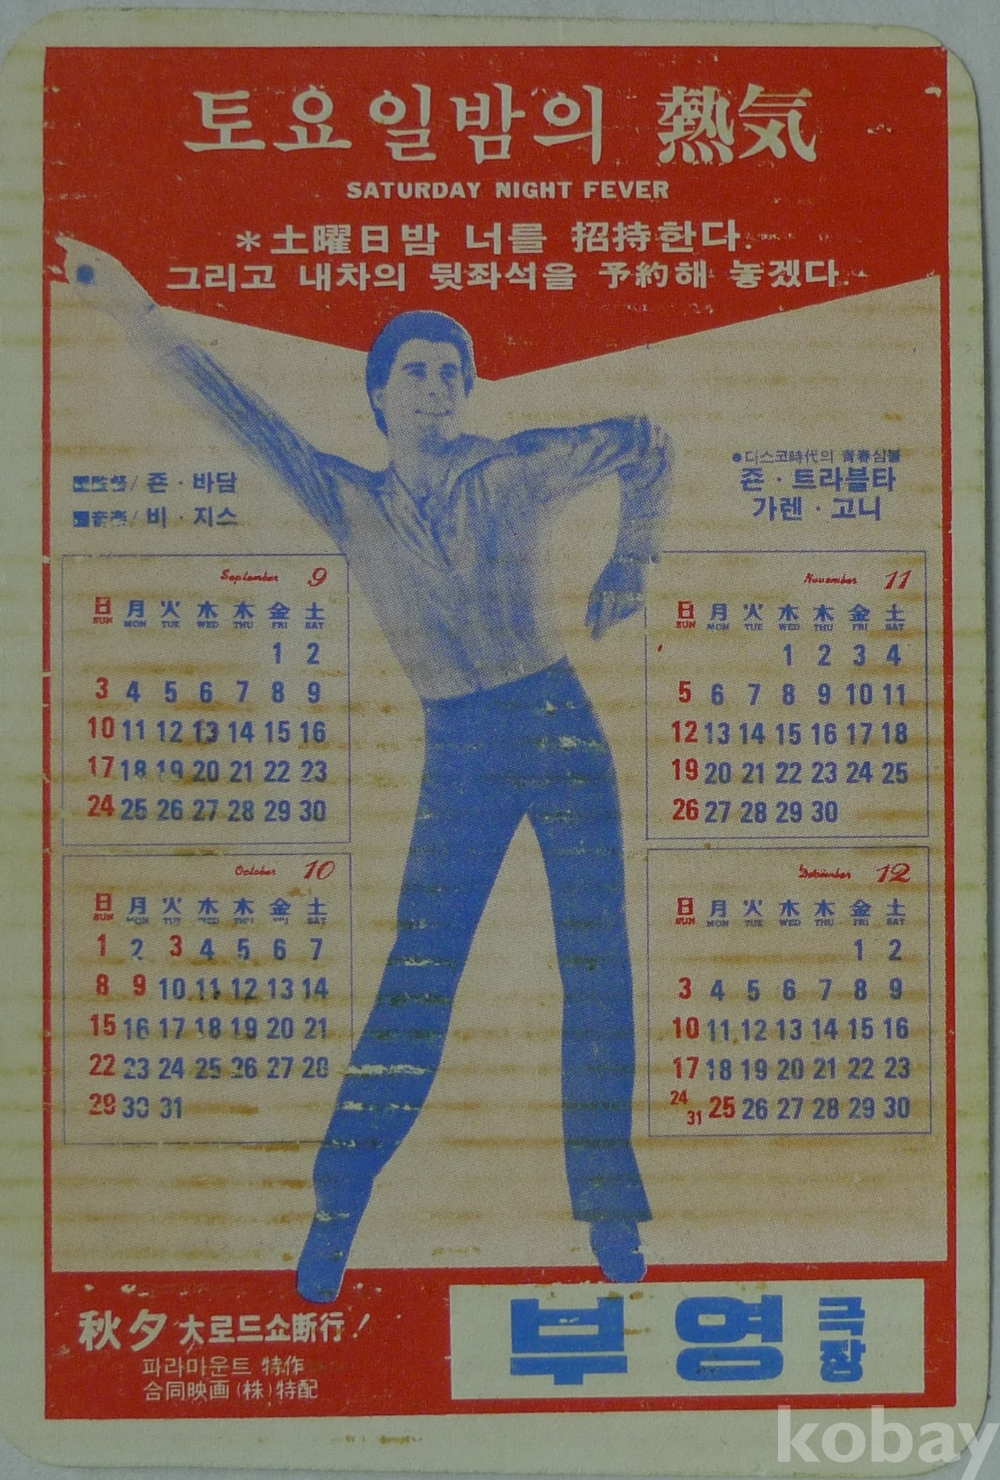 토요일밤의 熱気
SATURDAY NIGHT FEVER
＊土曜日밤 너를 招待한다.
그리고 내차의 뒷좌석을 予約해 놓겠다.
/ 죤·바담
/ 비·지스
●디스코時代의 靑春심볼
죤·트라블타
가렌·고니
September 9
日 月 火 水 木 金 土
SUN MON TUE WED THU FRI SAT
1 2
3 4 5 6 7 8 9
10 11 12 13 14 15 16
17 18 19 20 21 22 23
24 25 26 27 28 29 30
October 10
日 月 火 水 木 金 土
SUN MON TUE WED THU FRI SAT
1 2 3 4 5 6 7
8 9 10 11 12 13 14
15 16 17 18 19 20 21
22 23 24 25 26 27 28
29 30 31
November 11
日 月 火 水 木 金 土
SUN MON TUE WED THU FRI SAT
1 2 3 4
5 6 7 8 9 10 11
12 13 14 15 16 17 18
19 20 21 22 23 24 25
26 27 28 29 30
December 12
日 月 火 水 木 金 土
SUN MON TUE WED THU FRI SAT
1 2
3 4 5 6 7 8 9
10 11 12 13 14 15 16
17 18 19 20 21 22 23
24 31 25 26 27 28 29 30
秋夕 大로드쇼断行!
파라마운트 特作
合同映画(株)特配
부영 극장
kobay